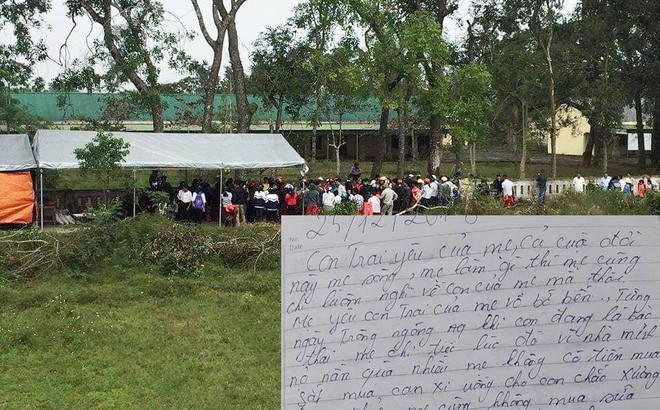 No.
Date
25/12/20
Con Trai yêu của mẹ, Cả cuộc đời
này mẹ sống, mẹ làm gì thì mẹ cũng
chỉ luôm nghĩ về con của mẹ mà thôi.
Mẹ yêu con Trai của mẹ vô bờ bến, Từng
ngày Trông ngóng khi con đang là bào
thai mẹ chỉ tiếc lúc đó vì nhà mình
nợ nần quá nhiều mẹ không có tiền mua
sắt mua, can xi uống cho con chắc xương
mẹ cũng không mua sữa